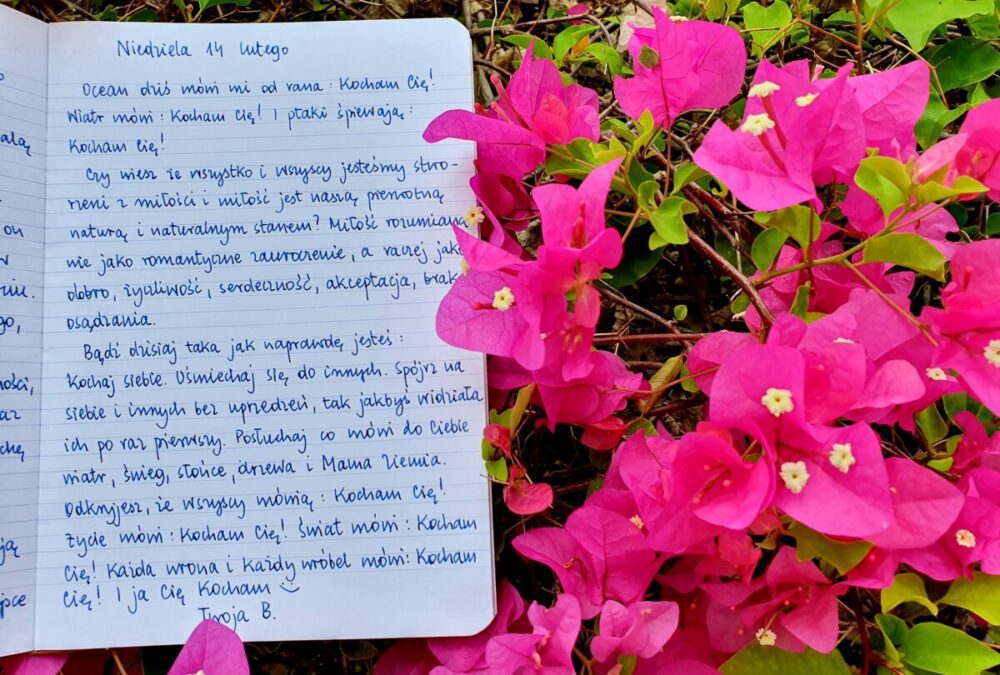 Niedziela 14 lutego
Ocean dziś mówi mi od rana: Kocham Cię!
Wiatr mówi: Kocham Cię! I ptaki śpiewają:
Kocham Cię!
Czy wiesz że wszystko i wszyscy jesteśmy stwo-
rzeni z miłości i miłość jest naszą pierwotną
naturą i naturalnym stanem? Miłość rozumiana
nie jako romantyczne zauroczenie, a raczej jako
dobro, życzliwość, serdeczność, akceptacja, brak
osądzania.
Bądź dzisiaj taka jak naprawdę jesteś:
Kochaj siebie. Uśmiechaj się do innych. Spójrz na
siebie i innych bez uprzedzeń, tak jakbyś widziała
ich po raz pierwszy. Posłuchaj co mówi do Ciebie
wiatr, śnieg, słońce, drzewa i Mama Ziemia.
Odkryjesz, że wszyscy mówią: Kocham Cię!
Życie mówi: Kocham Cię! Świat mówi: Kocham
Cię! Każda wrona i każdy wróbel mówi: Kocham
Cię! I ja Cię Kocham
Twoja B.